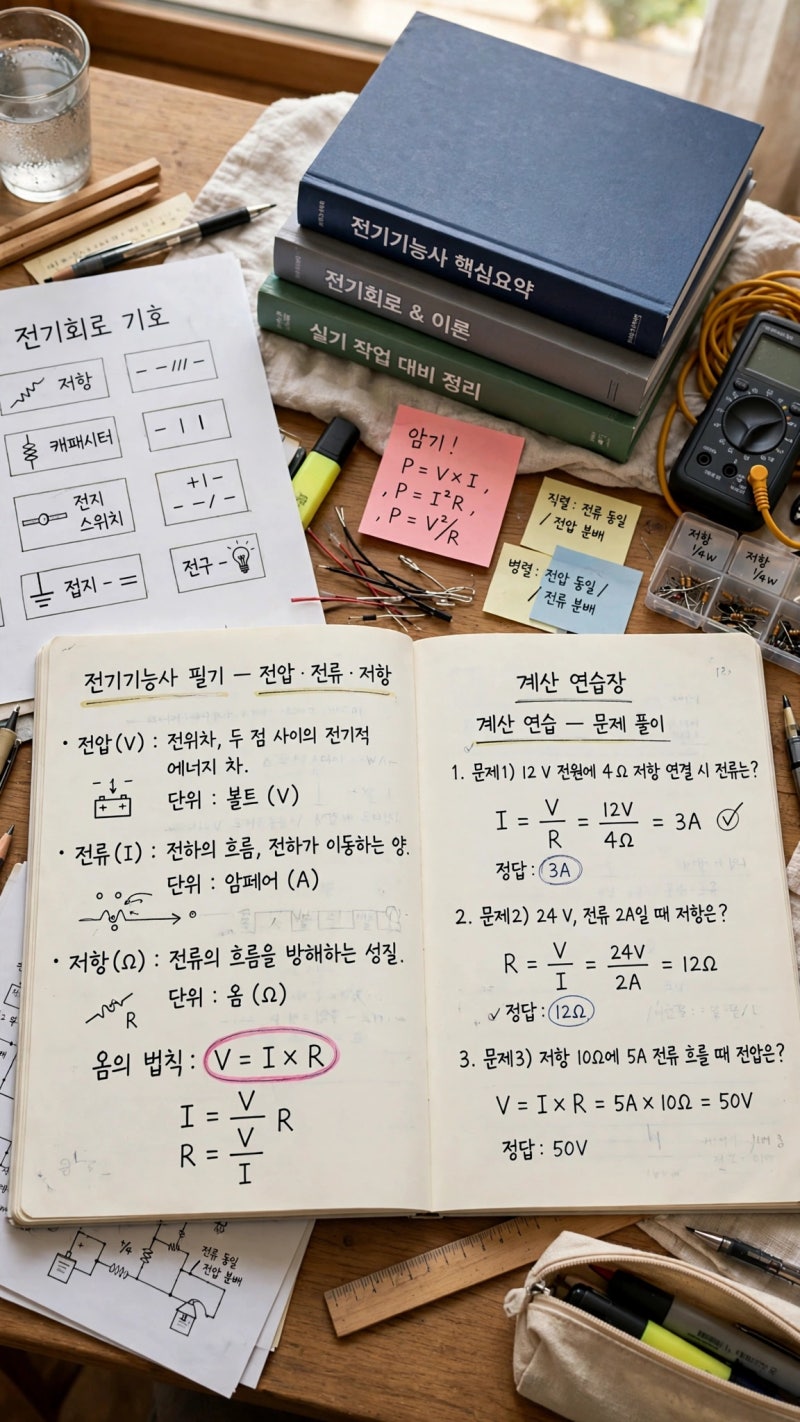 전기기능사 핵심요약
전기회로 & 이론
실기 작업 대비 정리
전기회로 기호
저항
캐패시터
전지
스위치
접지
전구
암기!
P = V × I,
, P = I²R,
, P = V²/R
직렬 : 전류 동일
/ 전압 분배
병렬 : 전압 동일 /
/ 전류 분배
저항
1/4W
저항
1/4W
전기기능사 필기 – 전압 · 전류 · 저항
• 전압(V) : 전위차, 두 점 사이의 전기적
에너지 차.
단위 : 볼트 (V)
• 전류(I) : 전하의 흐름, 전하가 이동하는 양.
단위 : 암페어 (A)
• 저항(Ω) : 전류의 흐름을 방해하는 성질.
단위 : 옴 (Ω)
R
옴의 법칙 : V = I × R
I = V/ R
R = V/I
계산 연습장
계산 연습 — 문제 풀이
1. 문제1) 12 V 전원에 4Ω 저항 연결 시 전류는?
I = V/R = 12V/4Ω = 3A
정답 : 3A
2. 문제2) 24 V, 전류 2A일 때 저항은?
R = V/I = 24V/2A = 12Ω
✓ 정답 : 12Ω
3. 문제3) 저항 10Ω에 5A 전류 흐를 때 전압은?
V = I × R = 5A × 10Ω = 50V
정답 : 50V
전류 동일
/ 전압 분배